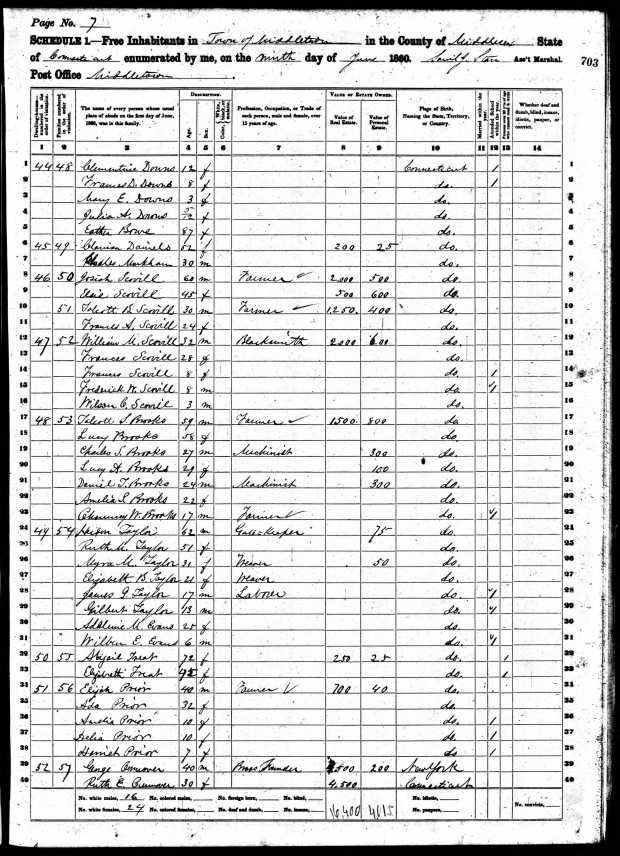 Page No. 7
SCHEDULE 1.—Free Inhabitants in Town of Middletown in the County of Middlesex State
of Connecticut enumerated by me, on the ninth day of June 1860. Ass't Marshal. 703
Post Office Middletown
DESCRIPTION. VALUE OF ESTATE OWNED.
The name of every person whose usual place of abode on the first day of June, 1860, was in this family. Age. Sex. Profession, Occupation, or Trade of each person, male and female, over 15 years of age. Value of Real Estate. Value of Personal Estate. Place of Birth, Naming the State, Territory, or Country. Married within the year. Attended School within the year. Whether deaf and dumb, blind, insane, idiotic, pauper, or convict.
1 2 3 4 5 6 7 8 9 10 11 12 13 14
1 44 48 Clementine Downs 12 f Connecticut 1 1
2 Frances D. Downs 8 f do. 1 2
3 Mary E. Downs 3 f do. 3
4 Julia A. Downs f do. 4
5 Bowe 87 f do. 5
6 45 49 Daniels 52 f 200 25 do. 6
7 Charles Markham 30 m do. 7
8 46 50 Josiah Scovill 60 m Farmer 2000 500 do. 8
9 Elsie Scovill 45 f 500 600 do. 9
10 51 Talcott B. Scovill 30 m Farmer 1,250 400 do. 10
11 Frances A. Scovill 24 f do. 11
12 47 52 William M. Scovill 32 m Blacksmith 2000 600 do. 12
13 Frances Scovill 28 f do. 13
14 Frances Scovill 8 f do. 1 14
15 Frederick W. Scovill 8 m do. 1 15
16 Wilson C. Scovill 3 m do. 16
17 48 53 Talcott S. Brooks 59 m Farmer 1500 800 do. 17
18 Lucy Brooks 58 f do. 18
19 Charles S. Brooks 27 m Machinist 300 do. 19
20 Lucy A. Brooks 29 f 100 do. 20
21 Daniel T. Brooks 24 m Machinist 300 do. 21
22 Amelia S. Brooks 22 f do. 22
23 Chauncey W. Brooks 17 m Farmer do. 1 23
24 49 54 Taylor 62 m Gate Keeper 75 do. 24
25 Ruth M. Taylor 51 f do. 25
26 Myra M. Taylor 31 f Weaver 50 do. 26
27 Elizabeth B. Taylor 21 f Weaver do. 27
28 James G. Taylor 17 m Laborer do. 1 28
29 Gilbert Taylor 13 m do. 1 29
30 Adaleine M. Evans 25 f do. 30
31 Wilbur E. Evans 6 m do. 1 31
32 50 55 Abigail Treat 72 f 250 25 do. 1
33 Elizabeth Treat f do. 1
34 51 56 Elijah Prior 40 m Farmer 700 40 do.
35 Ada Prior 32 f do. 35
36 Amelia Prior 10 f do. 1 36
37 Delia Prior 10 f do. 1 37
38 Harriet Prior 7 f do. 1 38
39 52 57 George 40 m Brass Founder 200 New York 39
40 Ruth E. 30 f 4,500 Connecticut 40
No. white males, 16 No. colored males, No. foreign born, No. blind, No. idiotic,
No. white females, 24 No. colored females, No. deaf and dumb, No. insane, 16,400 4015 No. paupers, No. convicts,